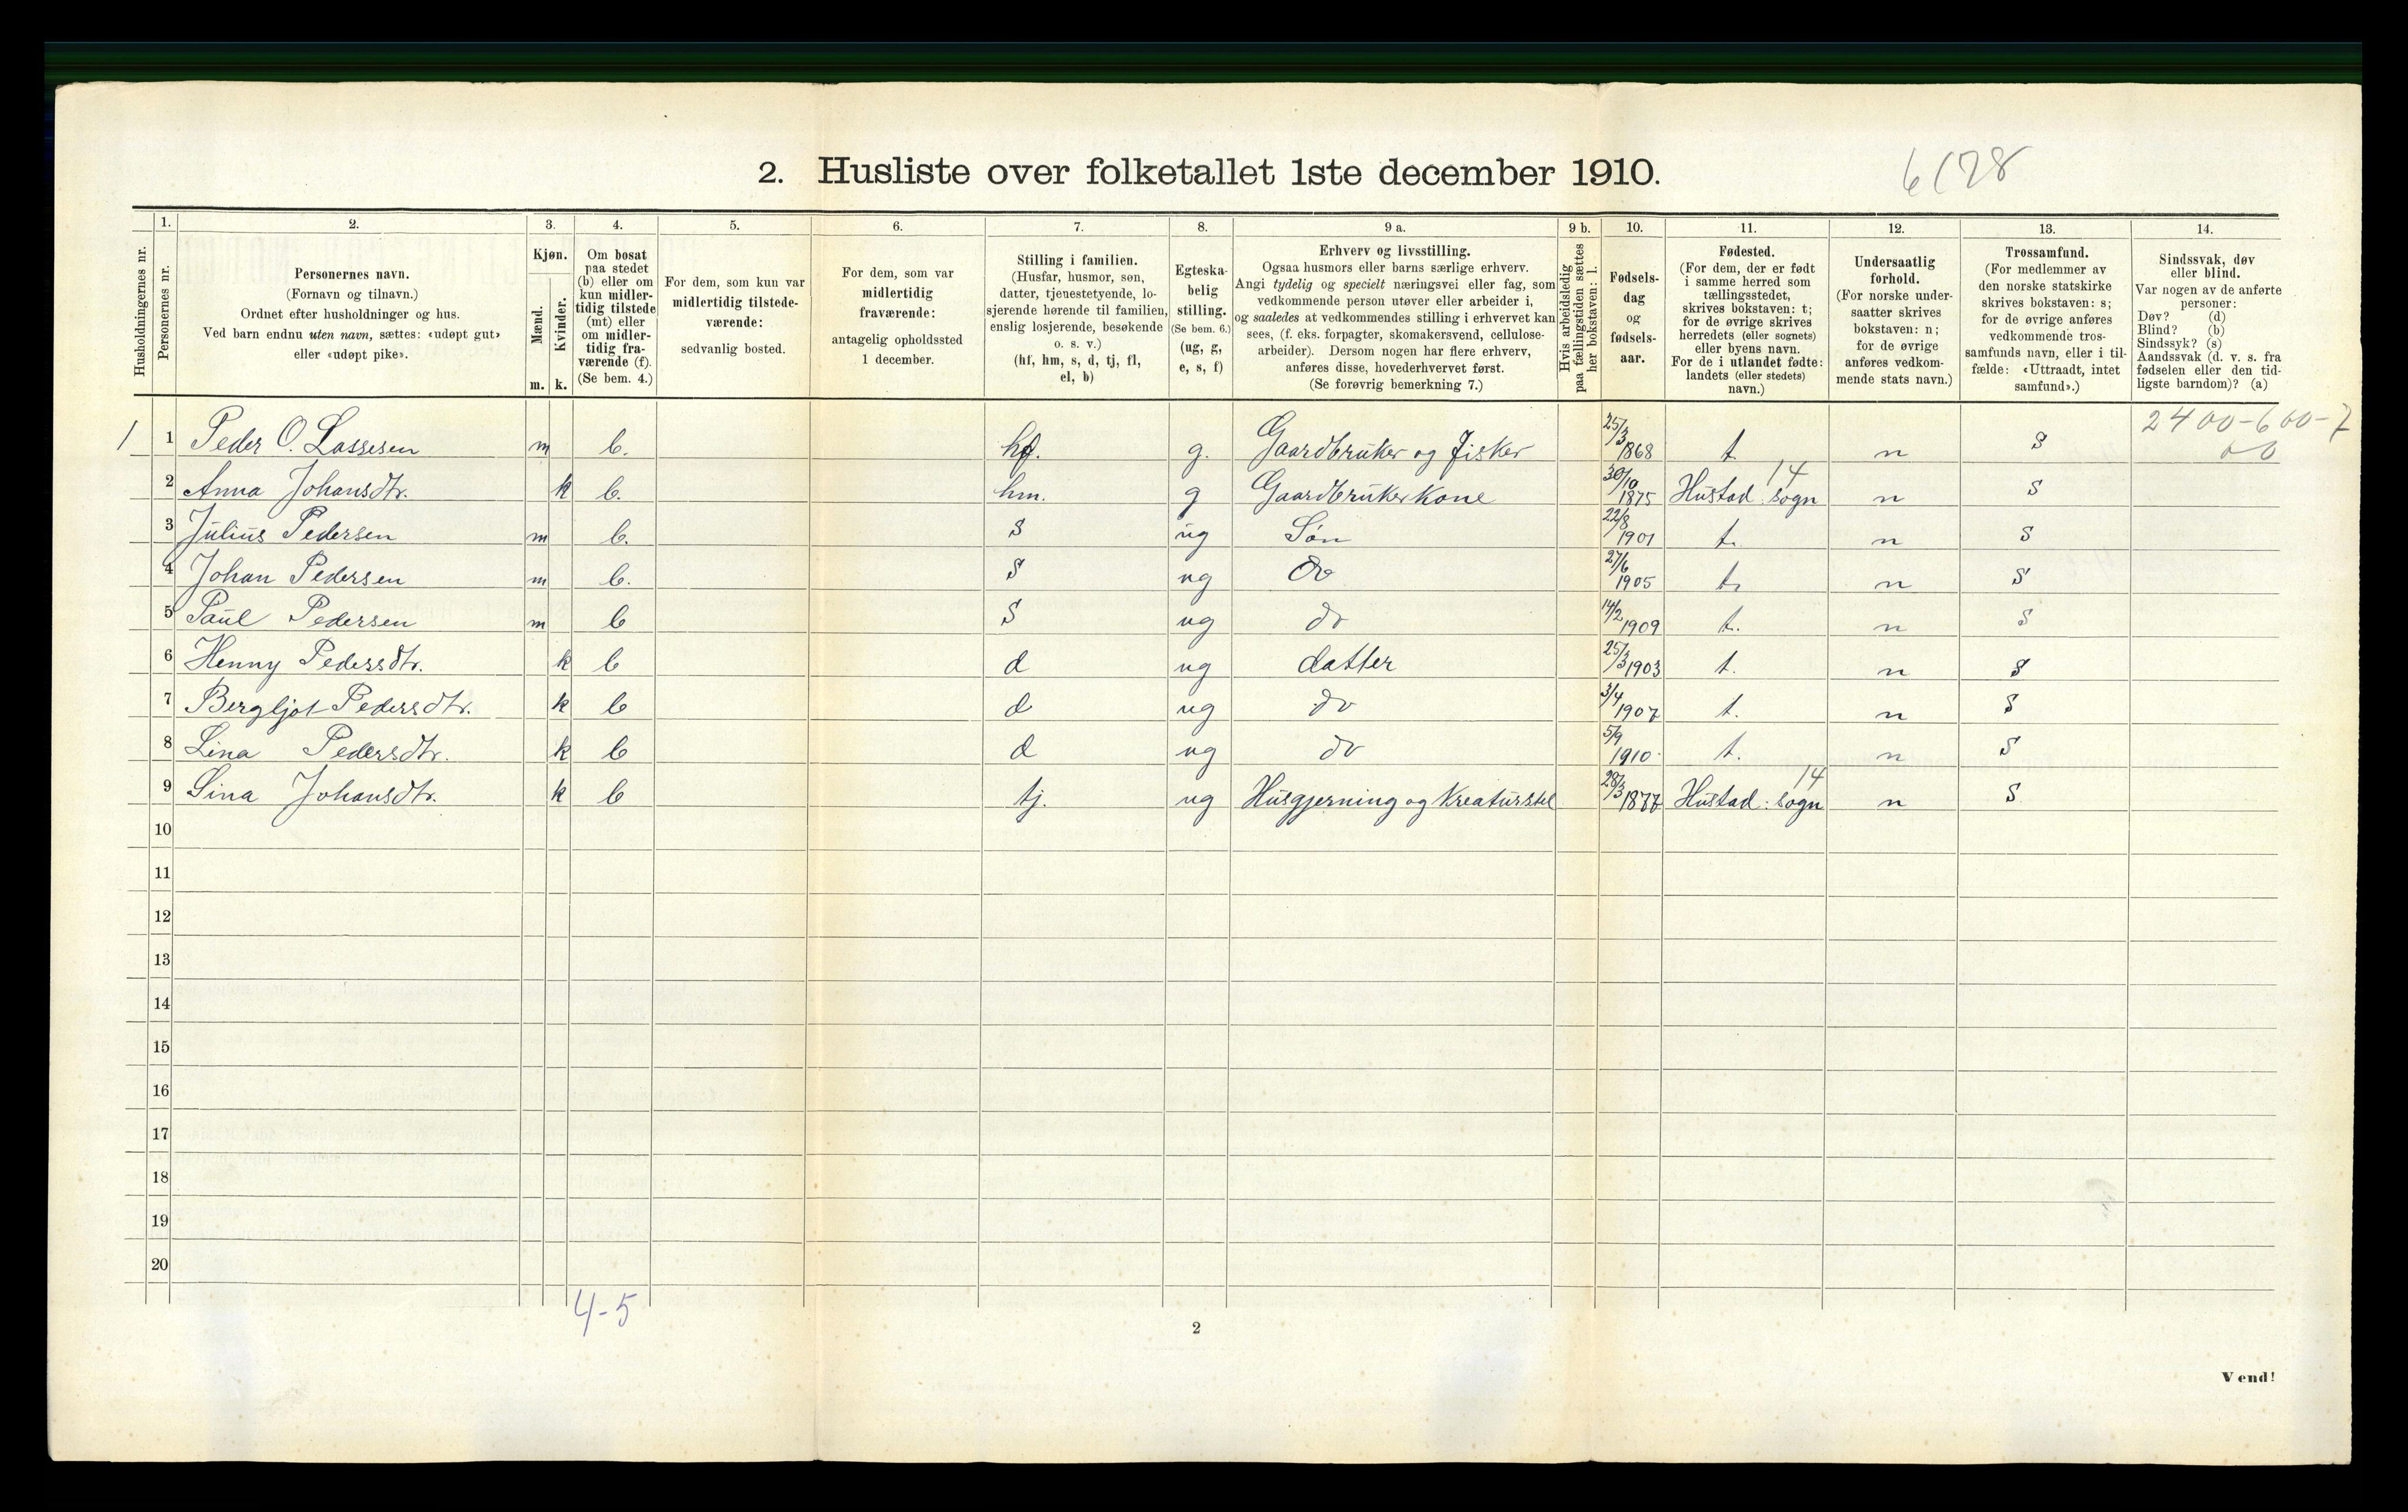 6128
2. Husliste over folketallet 1ste december 1910.
Husholdningernes nr.
1.
Personernes nr.
2.
Personernes navn.
(Fornavn og tilnavn.)
Ordnet efter husholdninger og hus.
Ved barn endnu uten navn, sættes: «udøpt gut»
eller «udøpt pike».
3.
Kjøn.
Mænd.
Kvinder.
m. k.
4.
Om bosat
paa stedet
(b) eller om
kun midler-
tidig tilstede
(mt) eller
om midler-
tidig fra-
værende (f).
(Se bem. 4.)
5.
For dem, som kun var
midlertidig tilstede-
værende:
sedvanlig bosted.
6.
For dem, som var
midlertidig
fraværende:
antagelig opholdssted
1 december.
7.
Stilling i familien.
(Husfar, husmor, søn,
datter, tjenestetyende, lo-
sjerende hørende til familien,
enslig losjerende, besøkende
o. s. v.)
(hf, hm, s, d, tj, fl,
el, b)
8.
Egteska-
belig
stilling.
(Se bem. 6.)
(ug, g,
e, s, f)
9 a.
Erhverv og livsstilling.
Ogsaa husmors eller barns særlige erhverv.
Angi tydelig og specielt næringsvei eller fag, som
vedkommende person utøver eller arbeider i,
og saaledes at vedkommendes stilling i erhvervet kan
sees, (f. eks. forpagter, skomakersvend, cellulose-
arbeider). Dersom nogen har flere erhverv,
anføres disse, hovederhvervet først.
(Se forøvrig bemerkning 7.)
9 b.
Hvis arbeidsledig
paa tællingstiden sættes
her bokstaven: l.
10.
Fødsels-
dag
og
fødsels-
aar.
11.
Fødested.
(For dem, der er født
i samme herred som
tællingsstedet,
skrives bokstaven: t;
for de øvrige skrives
herredets (eller sognets)
eller byens navn.
For de i utlandet fødte:
landets (eller stedets)
navn.)
12.
Undersaatlig
forhold.
(For norske under-
saatter skrives
bokstaven: n;
for de øvrige
anføres vedkom-
mende stats navn.)
13.
Trossamfund.
(For medlemmer av
den norske statskirke
skrives bokstaven: s;
for de øvrige anføres
vedkommende tros-
samfunds navn, eller i til-
fælde: «Uttraadt, intet
samfund».)
14.
Sindssvak, døv
eller blind.
Var nogen av de anførte
personer:
Døv? (d)
Blind? (b)
Sindssyk? (s)
Aandssvak (d. v. s. fra
fødselen eller den tid-
ligste barndom)? (a)
2400-600-7
00
1 1 Peder O. Lassesen m b. hf. g. Gaardbruker og Fisker 25/3 1868 t n S
2 Anna Johansdtr. k b. hm. g Gaardbrukerkone 30/10 1875 Hustad sogn 14 n S
3 Julius Pedersen m b. S ug Søn 22/8 1901 t. n S
4 Johan Pedersen m b. S ug do 27/6 1905 t. n S
5 Paul Pedersen m b S ug do 14/2 1909 t. n S
6 Henny Pedersdtr. k b d ug datter 25/3 1903 t. n S
7 Bergljot Pedersdtr. k b d ug do 3/4 1907 t. n S
8 Lina Pedersdtr. k b d ug do 5/9 1910 t. n S
9 Sina Johansdtr. k b tj. ug Husgjerning og Kreaturstel 28/3 1877 Hustad sogn 14 n S
10
11
12
13
14
15
16
17
18
19
20
4-5
2
Vend!